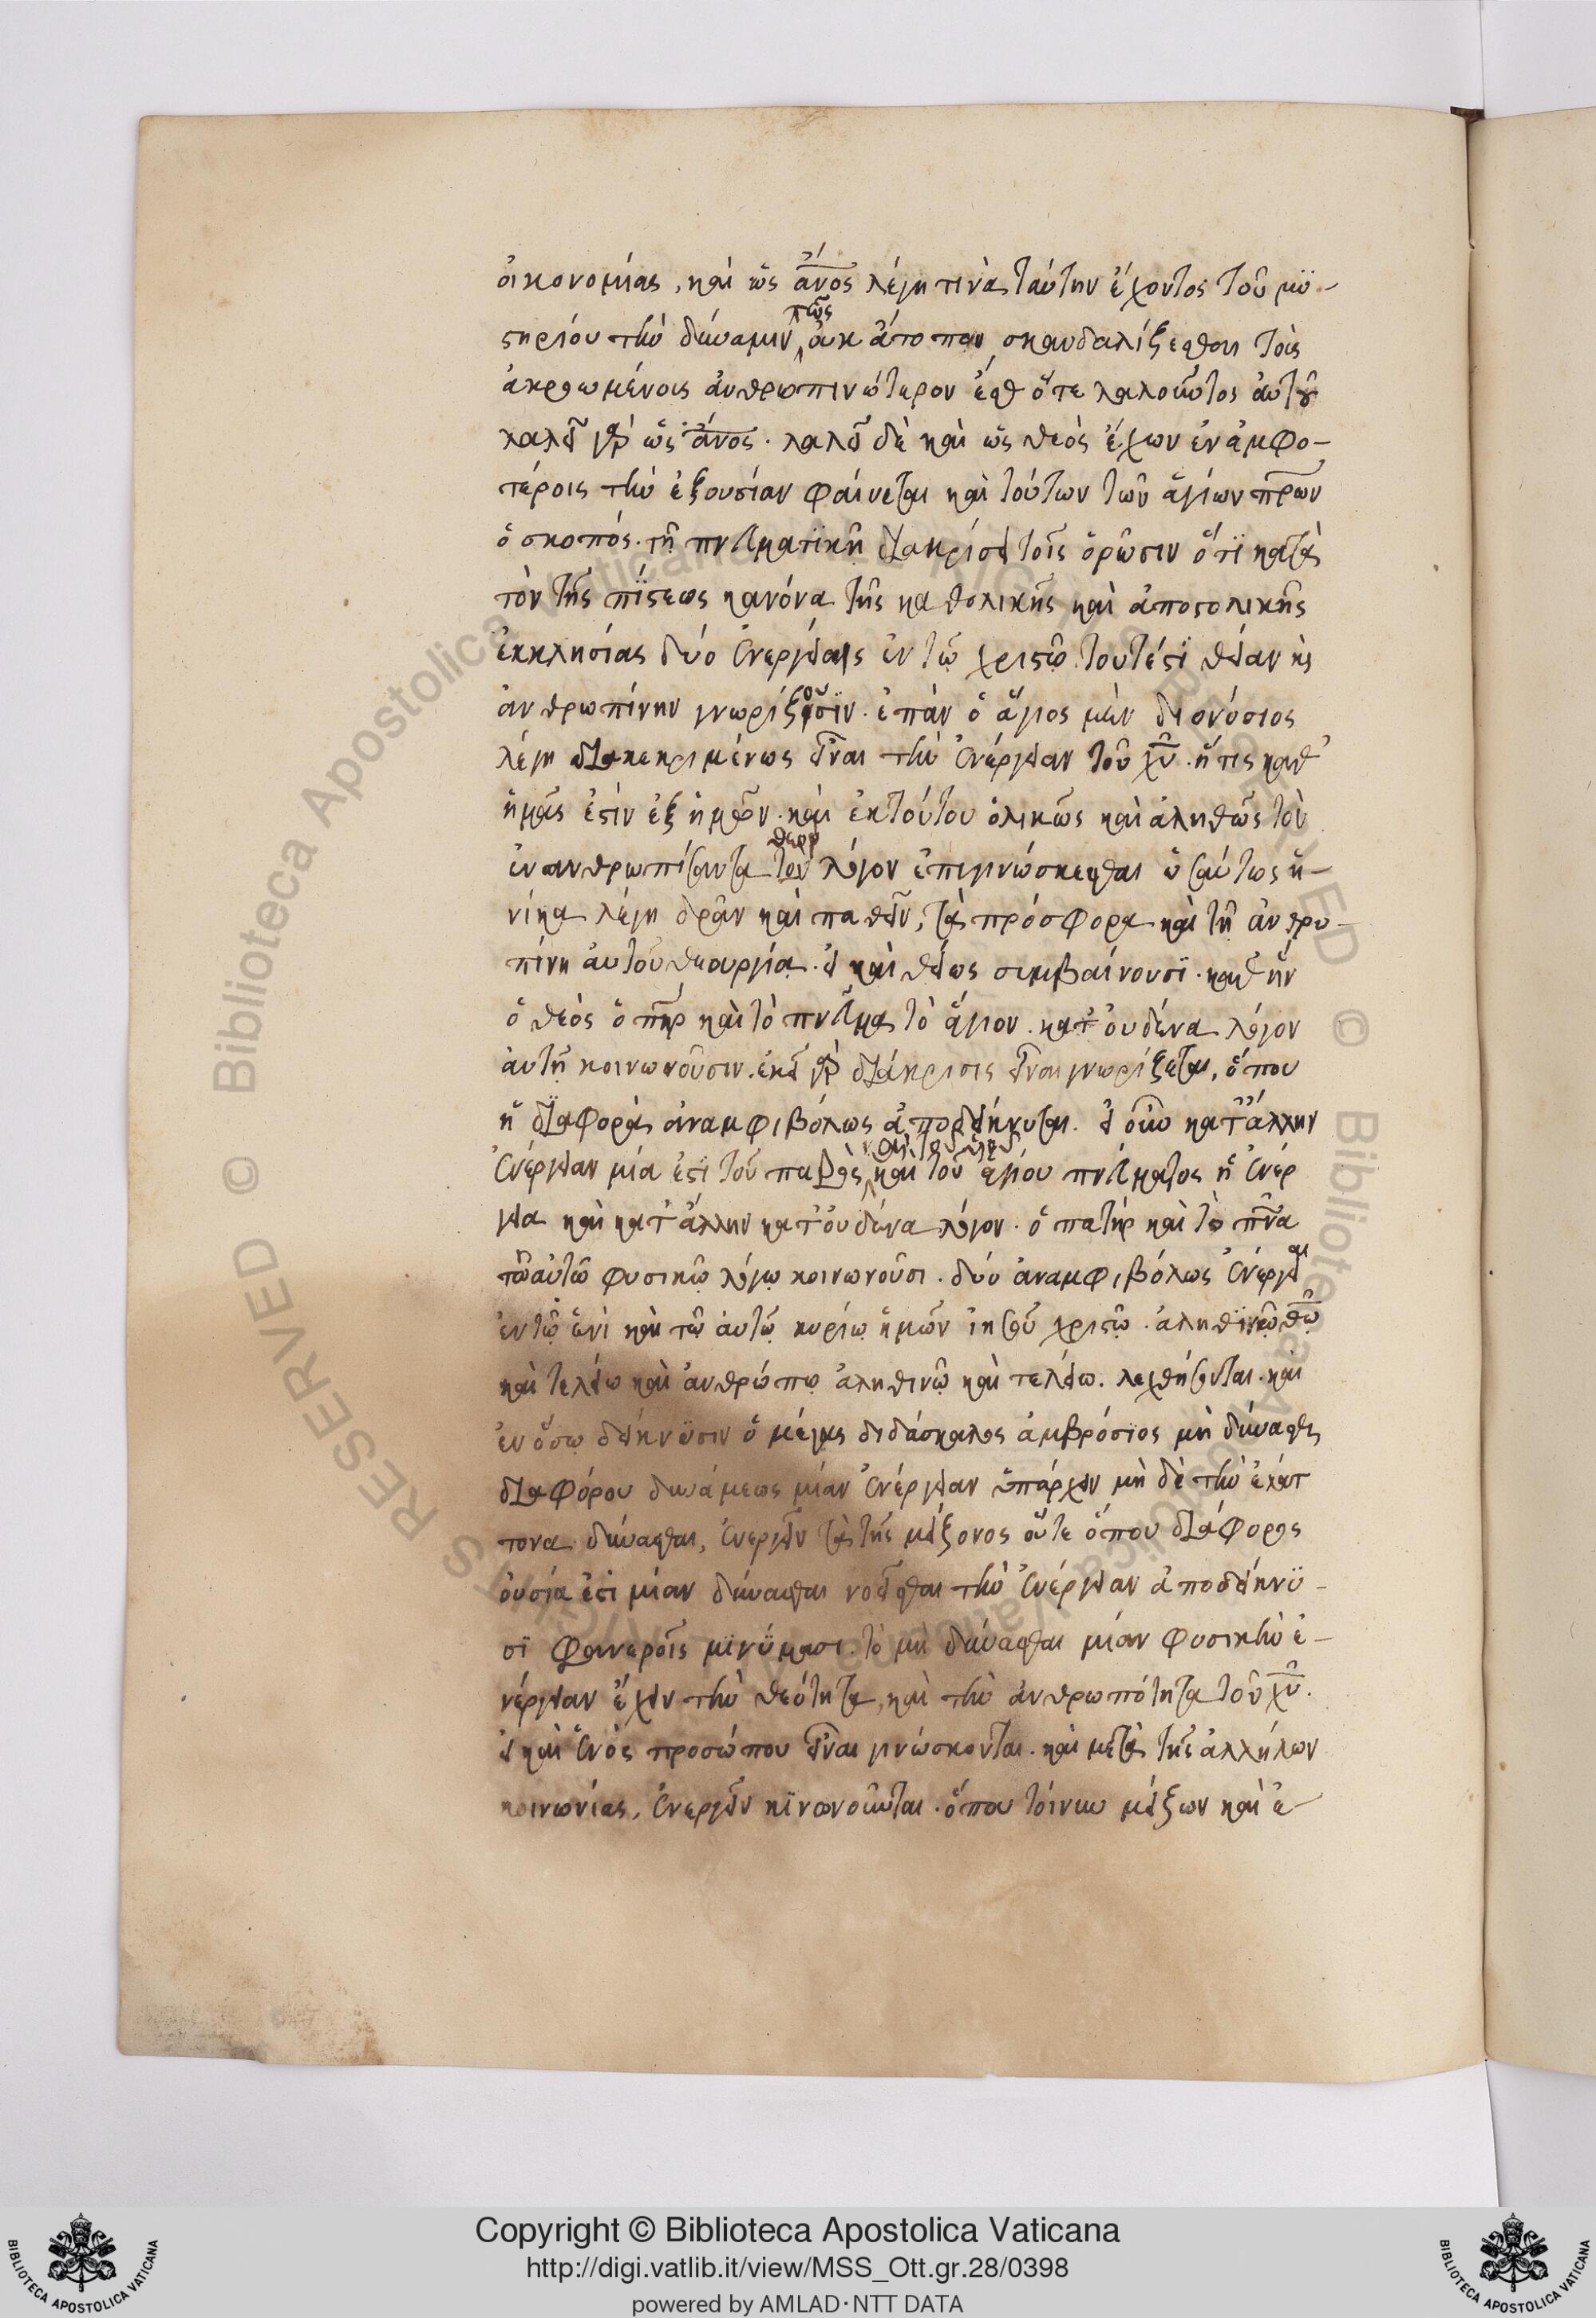 οἰκονομίας, καὶ ὡς ἄνος λέγη τινὰ ταύτην ἔχοντος τοῦ μϋ-
πῶς
στηρίου τὴν δύναμιν οὐκ ἄτοπον σκανδαλίζεσθαι τοῖς
ἀκροωμένοις ἀνθρωπινώτερον ἔσθ ὅτε λαλοῦντος αὐτοῦ
λαλεῖ γὰρ ὡς ἄνος. λαλεῖ δὲ καὶ ὡς θεός ἔχων ἐν ἀμφο-
τέροις τὴν ἐξουσίαν φαίνεται καὶ τούτων τῶν ἁγίων πρων
ὁ σκοπός. τῇ πνευματϊκῇ διακρίσει τοῖς ὁρῶσιν ὅτϊ κατὰ
τὸν τῆς πίστεως κανόνα τῆς καθολικῆς καὶ ἀποστολικῆς
ἐκκλησίας δύο ἐνεργείας ἐν τῷ χριστῷ. τουτέστι θείαν κς
ἀνθρωπίνην γνωρίζουσϊν. ἐπὰν ὁ ἅγιος μὲν διονύσιος
λέγη διακεκριμένως εἶναι τὴν ἐνέργειαν τοῦ χῦ. ἥτις καθ
ἡμᾶς ἐστὶν ἐξ ἡμῶν. καὶ ἐκ τούτου ὁλικῶς καὶ ἀληθῶς τὸν
ἐνανθρωπίσαντα τὸν λόγον ἐπιγινώσκεσθαι ὡσαύτως ἡ-
νίκα λέγη δρᾶν καὶ παθεῖν, τὰ πρόσφορα καὶ τῇ ἀνθρω-
πίνη αὐτοῦ θεουργία. εἰ καὶ θείως συμβαίνουσϊ. καθ ἣν
ὁ θεὸς ὁ πηρ καὶ τὸ πνεῦμα τὸ ἅγιον. κατ οὐδένα λόγον
αὐτῇ κοινωνοῦσιν. ἐκεῖ γὰρ διάκρισις εἶναι γνωρίζεται, ὅπου
ἡ διαφορὰ ἀναμφιβόλως ἀποδείκνυται. εἰ οὖν κατ ἄλλην
ἐνέργειαν μία ἐστὶ τοῦ πατρὸς καὶ τοῦ ἁγίου πνεύματος ἡ ἐνέρ
γεια καὶ κατ ἄλλην κατ οὐδένα λόγον. ὁ πατὴρ καὶ τὸ πνα
τῶ αὐτῶ φυσικῷ λόγῳ κοινωνοῦσι. δύο ἀναμφιβόλως ἐνέργειαι
ἐν τῷ ἑνὶ καὶ τῷ αὐτῷ κυρίῳ ἡμῶν ἰησοῦ χριστῷ. ἀληθϊνῷ θῷ
καὶ τελείω καὶ ἀνθρώπῳ ἀληθινῷ καὶ τελείω. λεχθήσονται. καὶ
ἐν ὅσῳ δείκνϋσιν ὁ μέγας διδάσκαλος ἀμβρόσϊος μὴ δύνασθαι
διαφόρου δυνάμεως μίαν ἐνέργειαν ὑπάρχειν μὴ δὲ τὴν ἐλάτ
τονα δύνασθαι, ἐνεργεῖν τὰ τῆς μείζονος οὔτε ὅπου διάφορος
οὐσία ἐστὶ μίαν δύνασθαι νοεῖσθαι τὴν ἐνέργειαν ἀποδείκνϋ-
σϊ φανεροῖς μϊνϋμασι. τὸ μὴ δύνασθαι μίαν φυσικὴν ἐ-
νέργειαν ἔχειν τὴν θεότητα, καὶ τὴν ἀνθρωπότητα τοῦ χῦ.
εἰ καὶ ἑνὸς προσώπου εἶναι γινώσκονται. καὶ μετὰ τῆς ἀλλήλων
κοινωνίας, ἐνεργεῖν κϊνωνοῦνται. ὅπου τοίνυν μείζων καὶ ἐ-
Copyright © Biblioteca Apostolica Vaticana
http://digi.vatlib.it/view/MSS_Ott.gr.28/0398
powered by AMLAD·NTT DATA